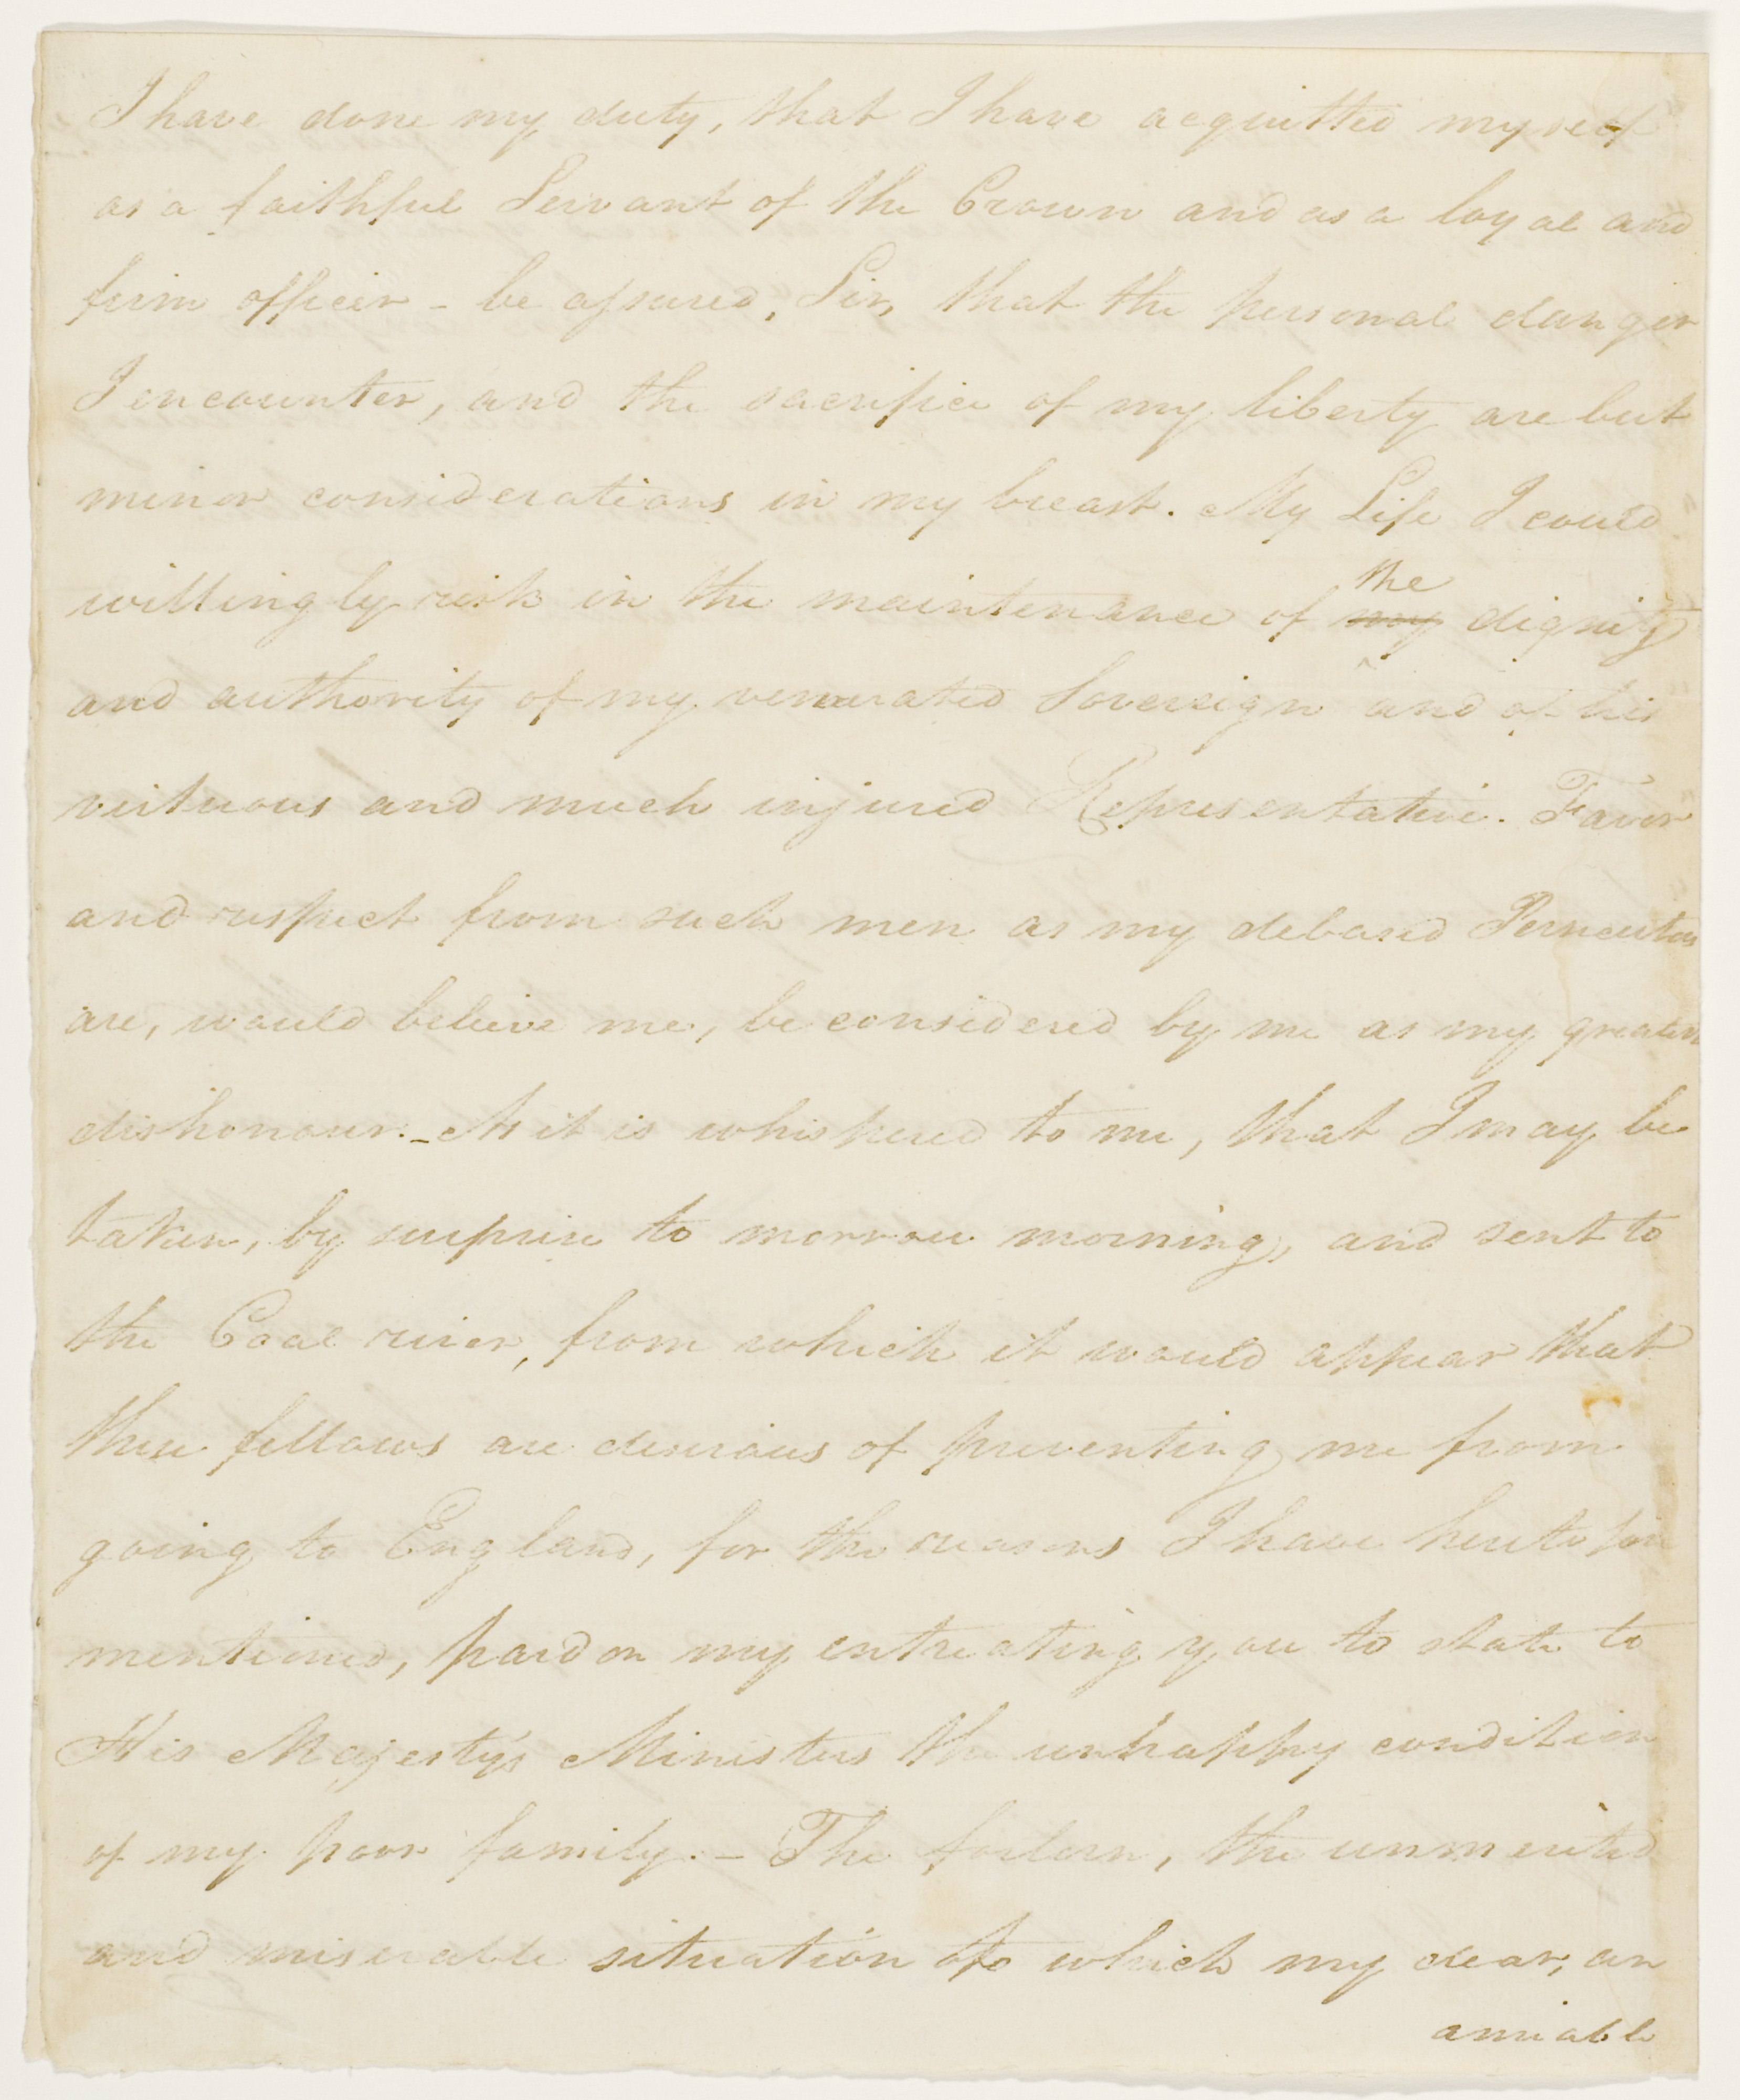 I have done my duty, that I have acquitted myself
as a faithful Servant of the Crown and as a loyal and
firm officer - be assured, Sir, that the personal danger
I encounter, and the sacrifice of my liberty are but
minor considerations in my breast. My Life I could
the
willingly risk in the maintenance of my dignity
and authority of my venerated Sovereign and of his
virtuous and much injured Representative. Favor
and respect from such men as my debased Persecutors
are, would believe me, be considered by me as my greatest
dishonour. - As it is whispered to me, that I may be
taken, by surprise to morrow morning, and sent to
the Coal river, from which it would appear that
these fellows are desirous of preventing me from
going to England, for the reasons I have heretofore
mentioned, pardon my entreating you to state to
His Majesty's Ministers the unhappy condition
of my poor family. - The forlorn, the unmerited
and miserable situation to which my dear, an
amiable